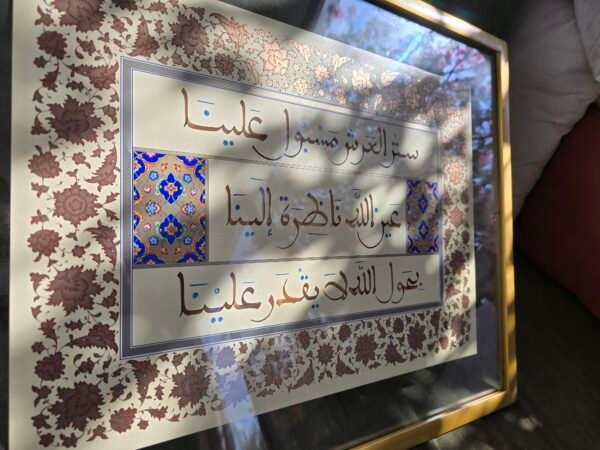 ستر العرش مسبول علينا
عين الله ناظرة إلينا
بحول الله لا يقدر علينا